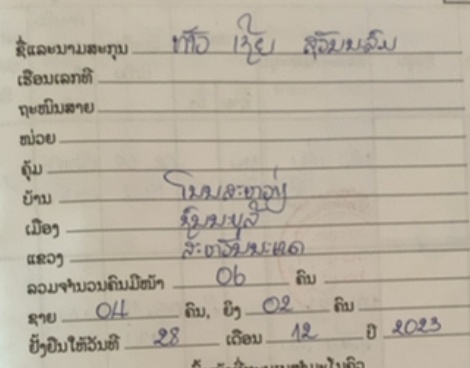 ຊື່ແລະນາມສະກຸນ ທ້າວ ເຊັຍ ສຸວັນນະລົມ
ເຮືອນເລກທີ
ຖະໜົນສາຍ
ໜ່ວຍ
ຄຸ້ມ
ບ້ານ ໂນນສະຫວ່າງ
ເມືອງ ຊົນນະບູລີ
ແຂວງ ສະຫວັນນະເຂດ
ລວມຈຳນວນຄົນມີໜ້າ 06 ຄົນ
ຊາຍ 04 ຄົນ, ຍິງ 02 ຄົນ
ຢັ້ງຢືນໃຫ້ວັນທີ 28 ເດືອນ 12 ປີ 2023